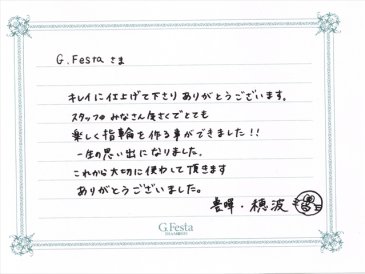 G.Festa さま
キレイに仕上げて下さり ありがとうございます。
スタッフの みなさん 良さくでとても
楽しく指輪を作る事ができました!!
一生の思い出になりました.
これから大切に使わして頂きます
ありがとうございました。
・穂波
G.Festa